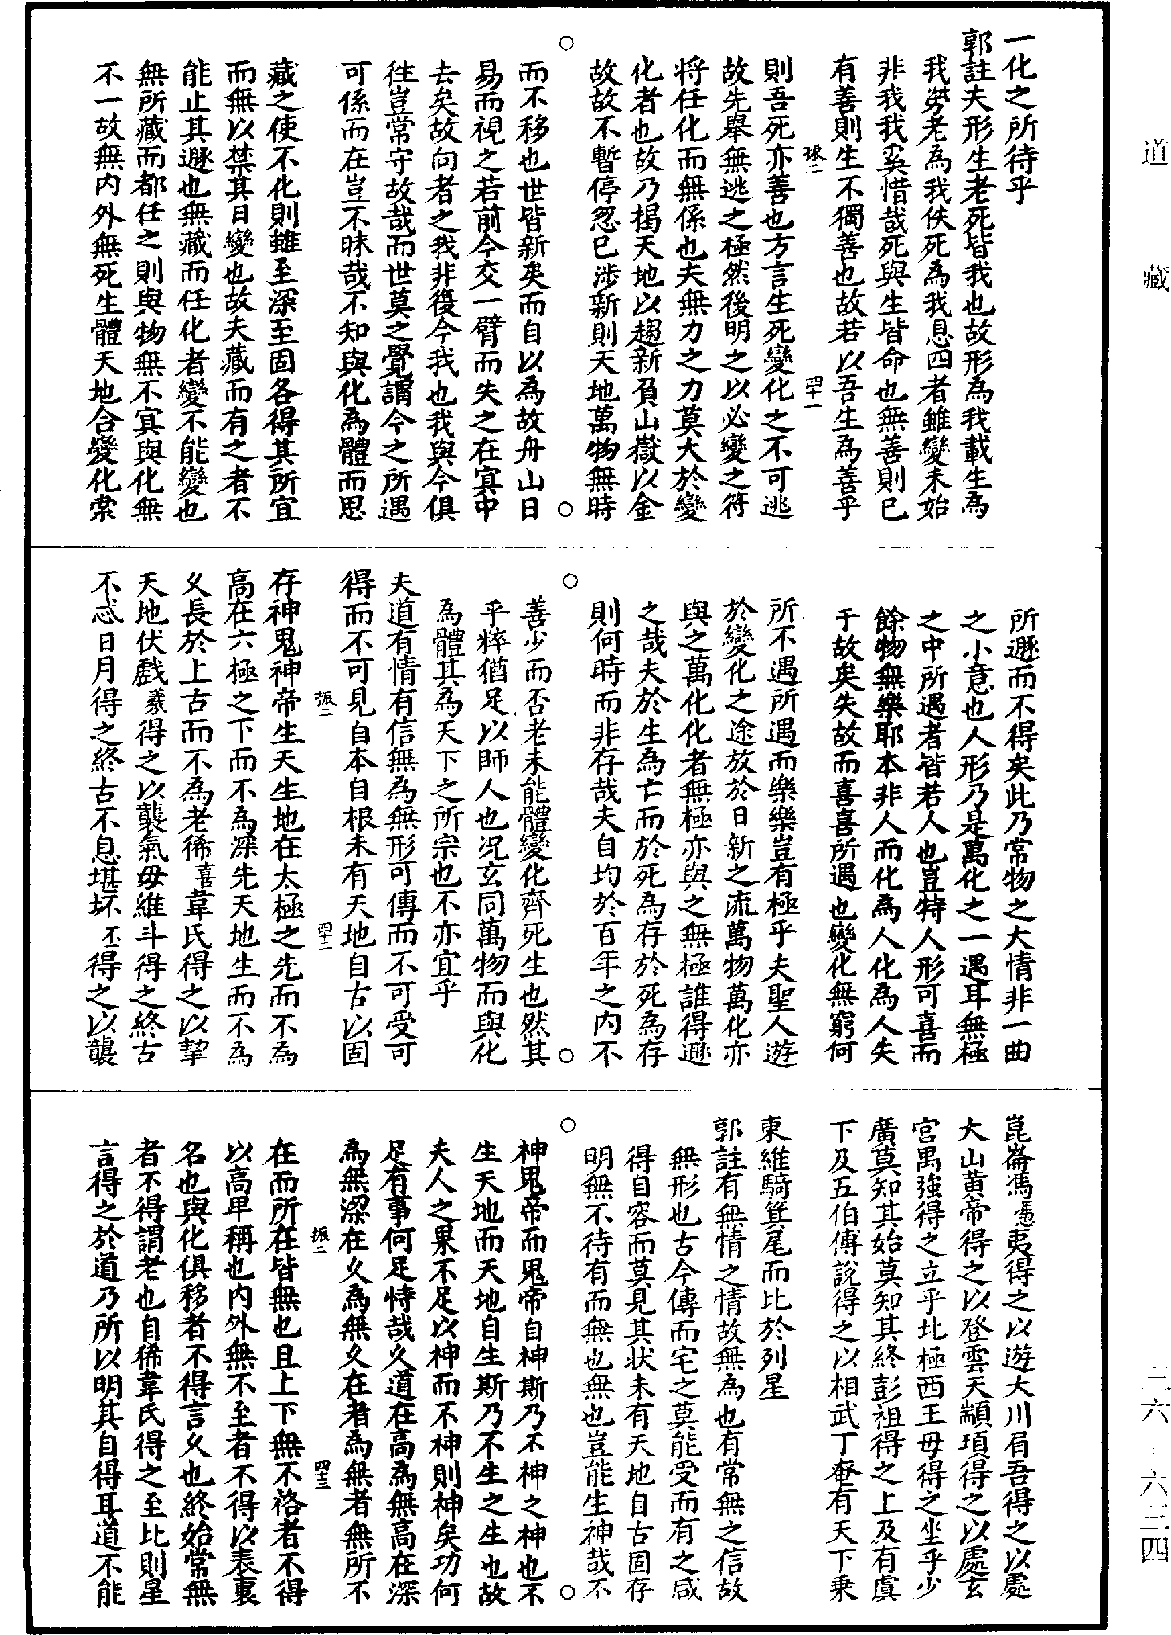 道藏
二六·六三四
一化之所待乎
郭註夫形生老死皆我也故形為我載生為
我勞老為我佚死為我息四者雖變未始
非我我奚惜哉死與生皆命也無善則已
有善則生不獨善也故若以吾生為善乎
則吾死亦善也方言生死變化之不可逃
故先舉無逃之極然後明之以必變之符
將任化而無係也夫無力之力莫大於變
化者也故乃揭天地以趨新負山嶽以舍
故故不暫停忽已涉新則天地萬物無時
而不移也世皆新矣而自以為故舟山日
易而視之若前今交一臂而失之在冥中
去矣故向者之我非復今我也我與今俱
往豈常守故哉而世莫之覺謂今之所遇
可係而在豈不昧哉不知與化為體而思
藏之使不化則雖至深至固各得其所宜
而無以禁其日變也故夫藏而有之者不
能止其遯也無藏而任化者變不能變也
無所藏而都任之則與物無不冥與化無
不一故無內外無死生體天地合變化索
所遯而不得矣此乃常物之大情非一曲
之小意也人形乃是萬化之一遇耳無極
之中所遇者皆若人也豈特人形可喜而
餘物無樂耶本非人而化為人化為人失
于故矣失故而喜喜所遇也變化無窮何
所不遇所遇而樂樂豈有極乎夫聖人遊
於變化之途放於日新之流萬物萬化亦
與之萬化化者無極亦與之無極誰得遯
之哉夫於生為亡而於死為存於死為存
則何時而非存哉夫自均於百年之內不
善少而否老未能體變化齊死生也然其
乎粹猶足以師人也况玄同萬物而與化
為體其為天下之所宗也不亦宜乎
夫道有情有信無為無形可傳而不可受可
得而不可見自本自根未有天地自古以固
存神鬼神帝生天生地在太極之先而不為
高在六極之下而不為深先天地生而不為
久長於上古而不為老狶喜韋氏得之以挈
天地伏戲羲得之以襲氣母維斗得之終古
不忒日月得之終古不息堪坏丕得之以襲
崑崙馮憑夷得之以遊大川肩吾得之以處
大山黃帝得之以登雲天顓頊得之以處玄
宮禺強得之立乎北極西王母得之坐乎少
廣莫知其始莫知其終彭祖得之上及有虞
下及五伯傅說得之以相武丁奄有天下乘
東維騎箕尾而比於列星
郭註有無情之情故無為也有常無之信故
無形也古今傳而宅之莫能受而有之咸
得自容而莫見其狀未有天地自古固存
明無不待有而無也無也豈能生神哉不
神鬼帝而鬼帝自神斯乃不神之神也不
生天地而天地自生斯乃不生之生也故
夫人之果不足以神而不神則神矣功何
足有事何足恃哉夂道在高為無高在深
為無深在久為無久在者為無者無所不
在而所在皆無也且上下無不格者不得
以高卑稱也內外無不至者不得以表裏
名也與化俱移者不得言久也終始常無
者不得謂老也自狶韋氏得之至比則星
言得之於道乃所以明其自得耳道不能